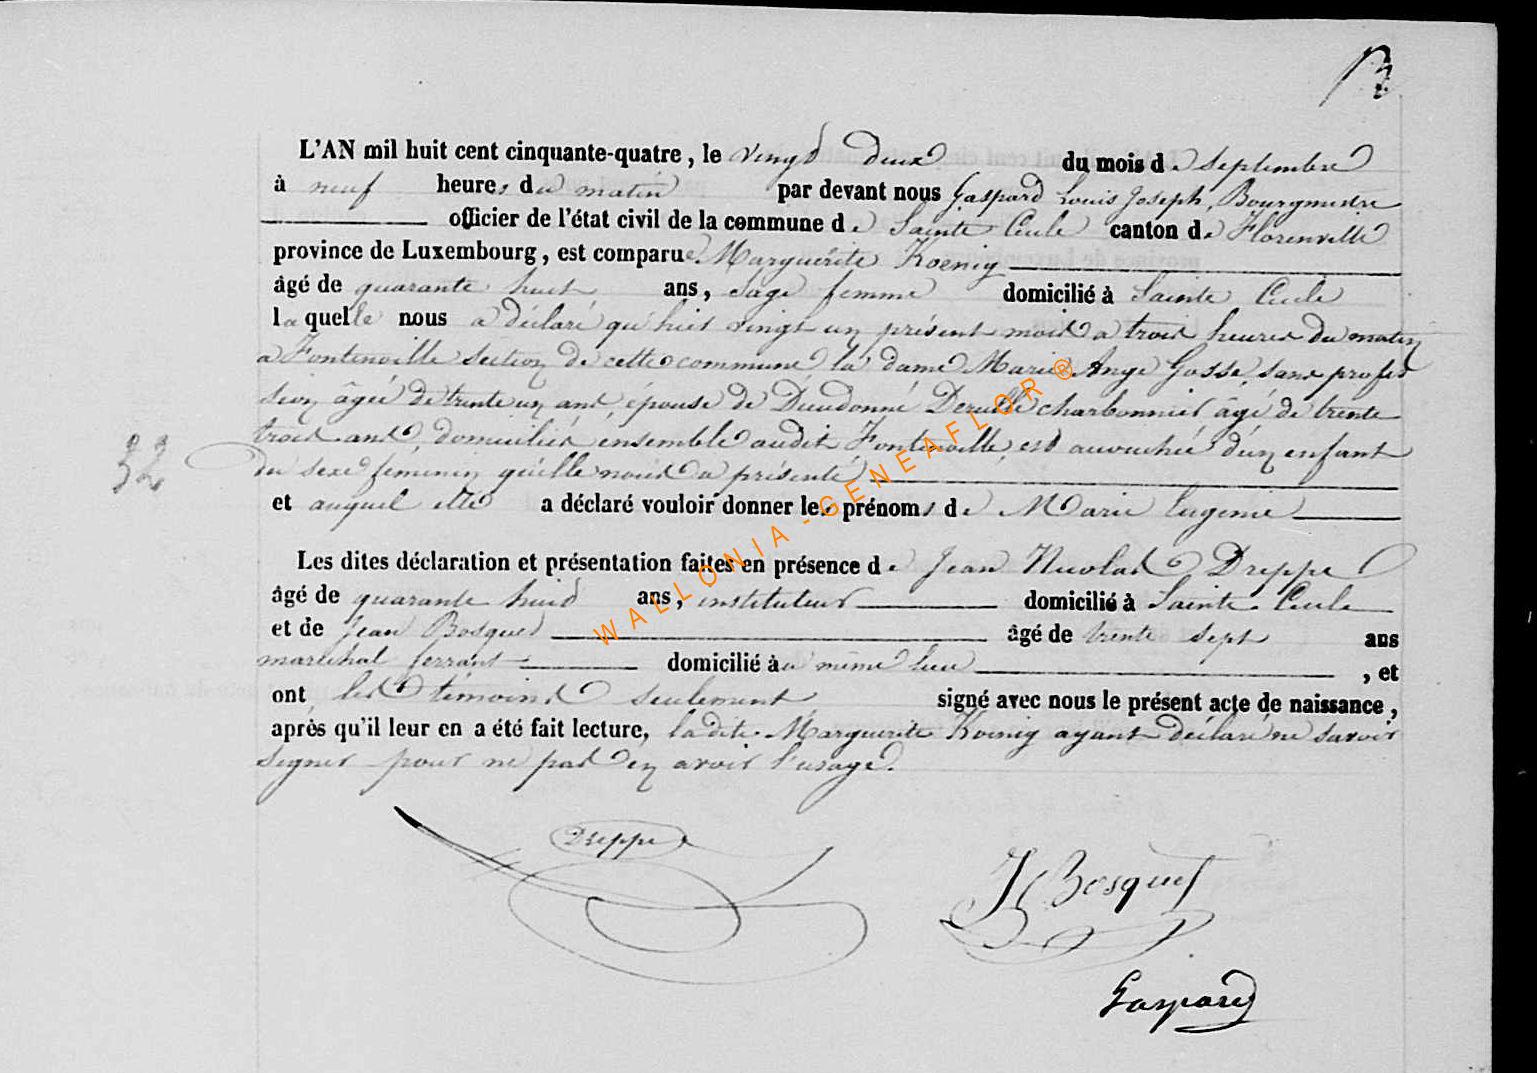 L'AN mil huit cent cinquante-quatre, le vingt deux du mois de septembre
à neuf heures du matin par devant nous Gaspard Louis Joseph, Bourgmestre
officier de l'état civil de la commune de Sainte Cécile canton de Florenville
province de Luxembourg, est comparue Marguérite Koenig
âgé de quarante huit ans, sage femme domicilié à Sainte Cécile
laquelle nous a déclaré qu'hier vingt un présent mois a trois heures du matin
a Fontenoille section de cette commune la dame Marie Ange Gosse, sans profes
sion âgée de trente un ans, épouse de Dieudonné charbonnier âgé de trente
trois ans domiciliés ensemble audit Fontenoille, est accouchée d'un enfant
52
du sexe féminin qu'elle nous a présenté
et auquel elle a déclaré vouloir donner les prénoms de Marie Eugenie
Les dites déclaration et présentation faites en présence de Jean Nicolas Dreppe
âgé de quarante huit ans, instituteur domicilié à Sainte Cécile
et de Jean Bosquet âgé de trente sept ans
maréchal ferrant domicilié au même lieu, et
ont les témoins seulement signé avec nous le présent acte de naissance,
après qu'il leur en a été fait lecture, la dite Marguerite Koenig ayant déclaré ne savoir
signer pour ne pas en avoir l'usage.
Dreppe
J Bosquet
Gaspard
WALLONIA-GENEAFLOR®